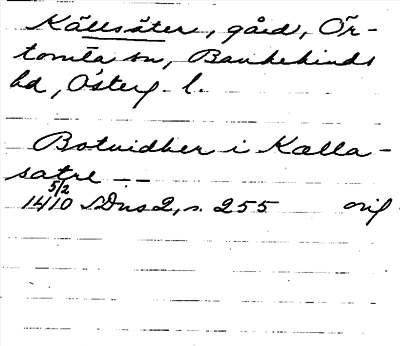 Källsäter, gård, Ör-
tomta sn, Bankekinds
hd, Österg. l.
Botvidher i Kælla-
sætre --
5/2
1410 SDns 2, s. 255 orig